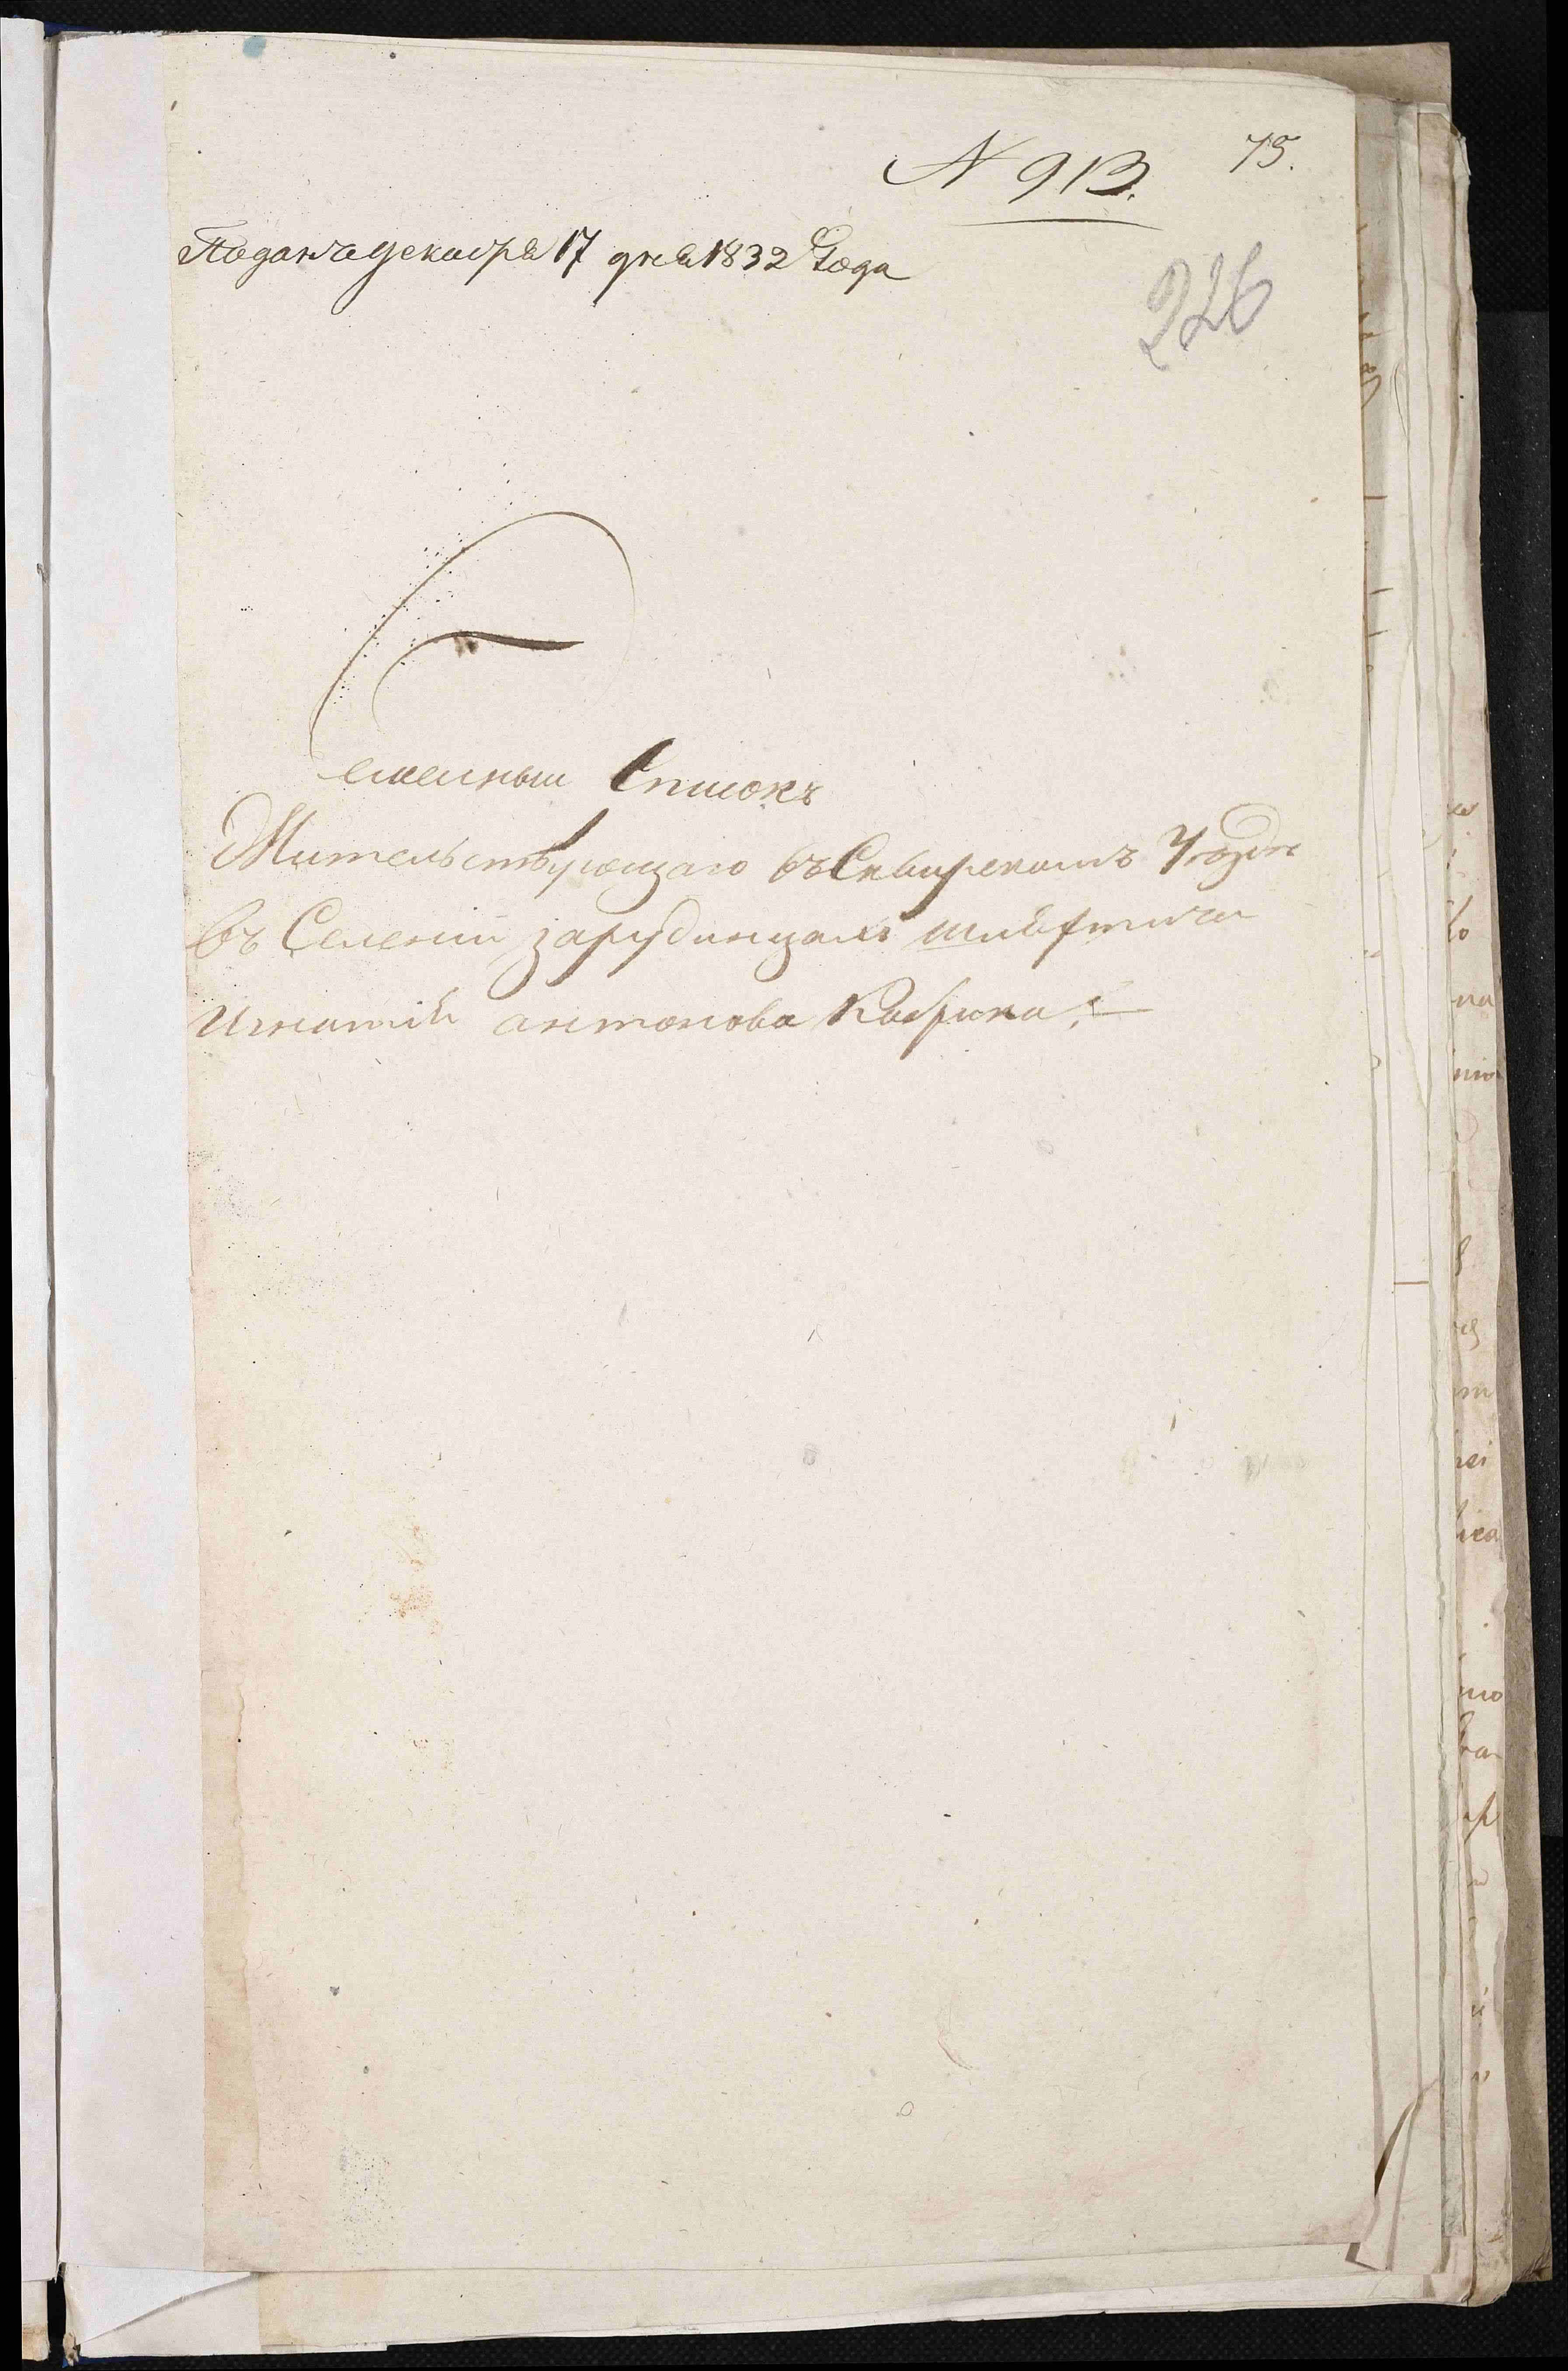 N 913. 75.
Подана декабря 17 дня 1832 Года
226
Семейный Списокъ
Жительствующаго въ Сквирскомъ Уездѣ
въ Селеніи зарудинцахъ шляхтича
Игнатій антонова